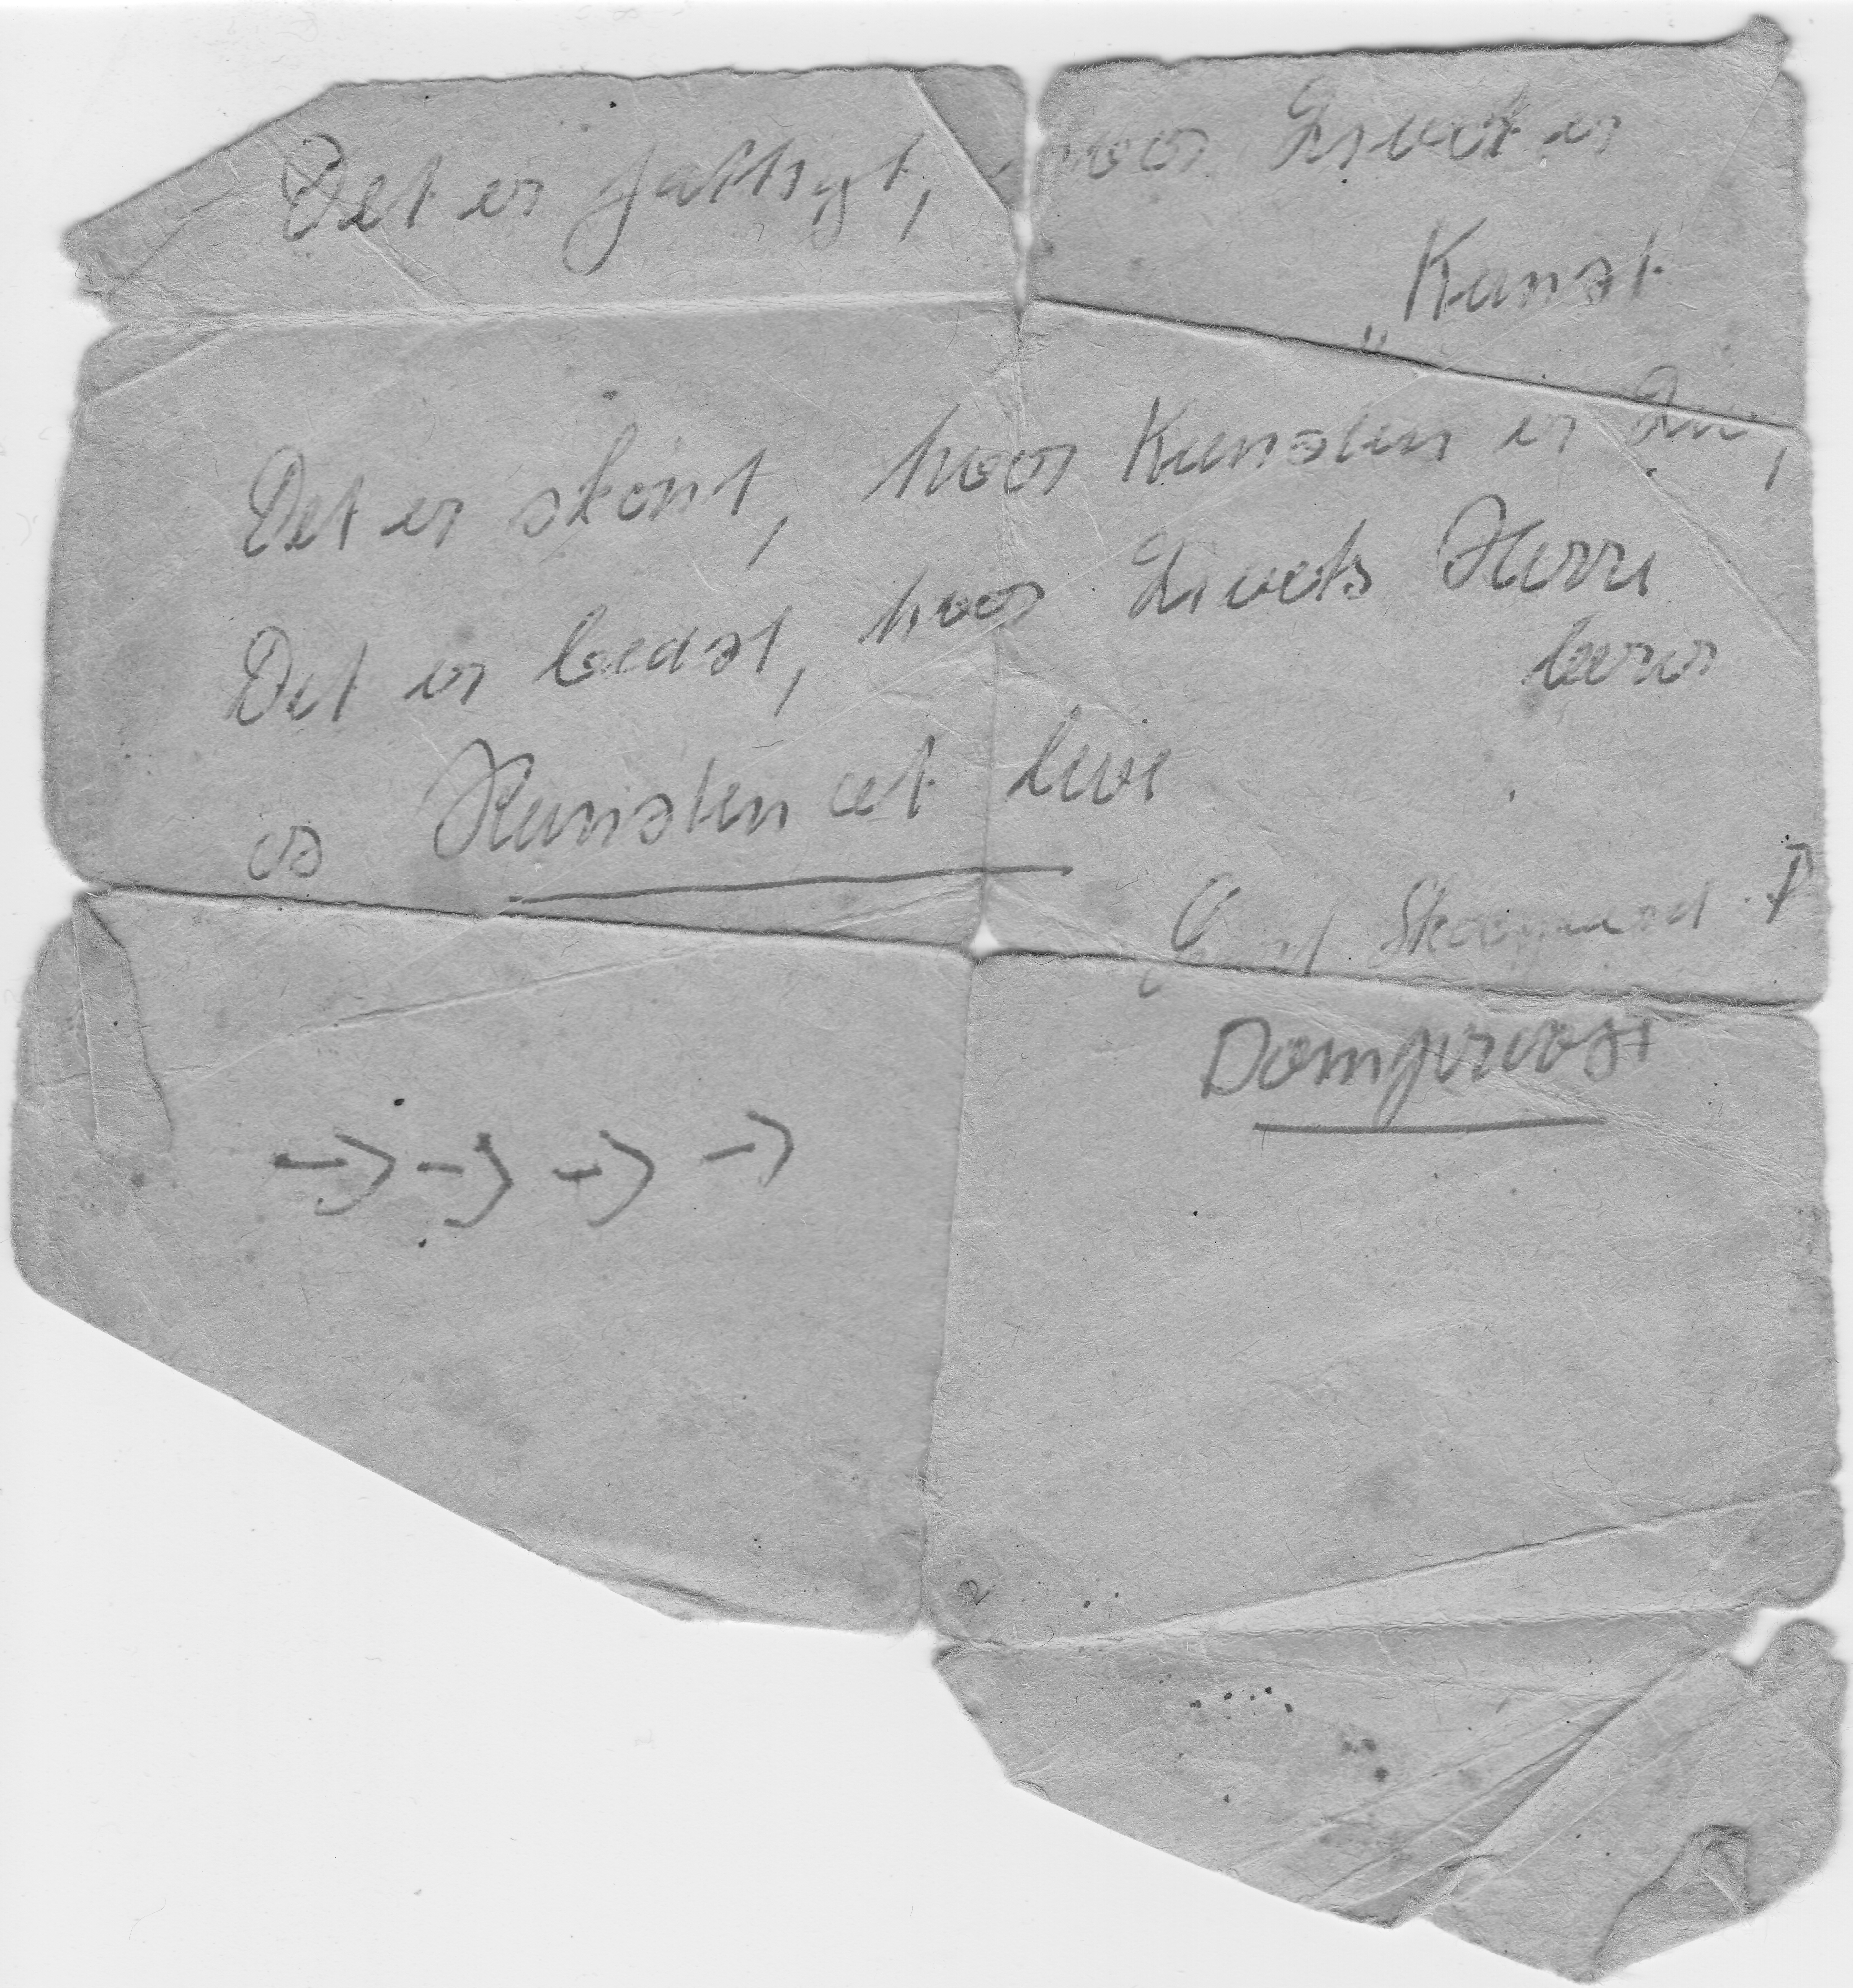 Det er fattigt, hvor Livet er
„ Kunst
Det er skönt, hvor Kunsten er Liv,
Det er bedst, hvor Livets Herre
lærer
os Kunsten at leve
Skovgaard
Domprovst